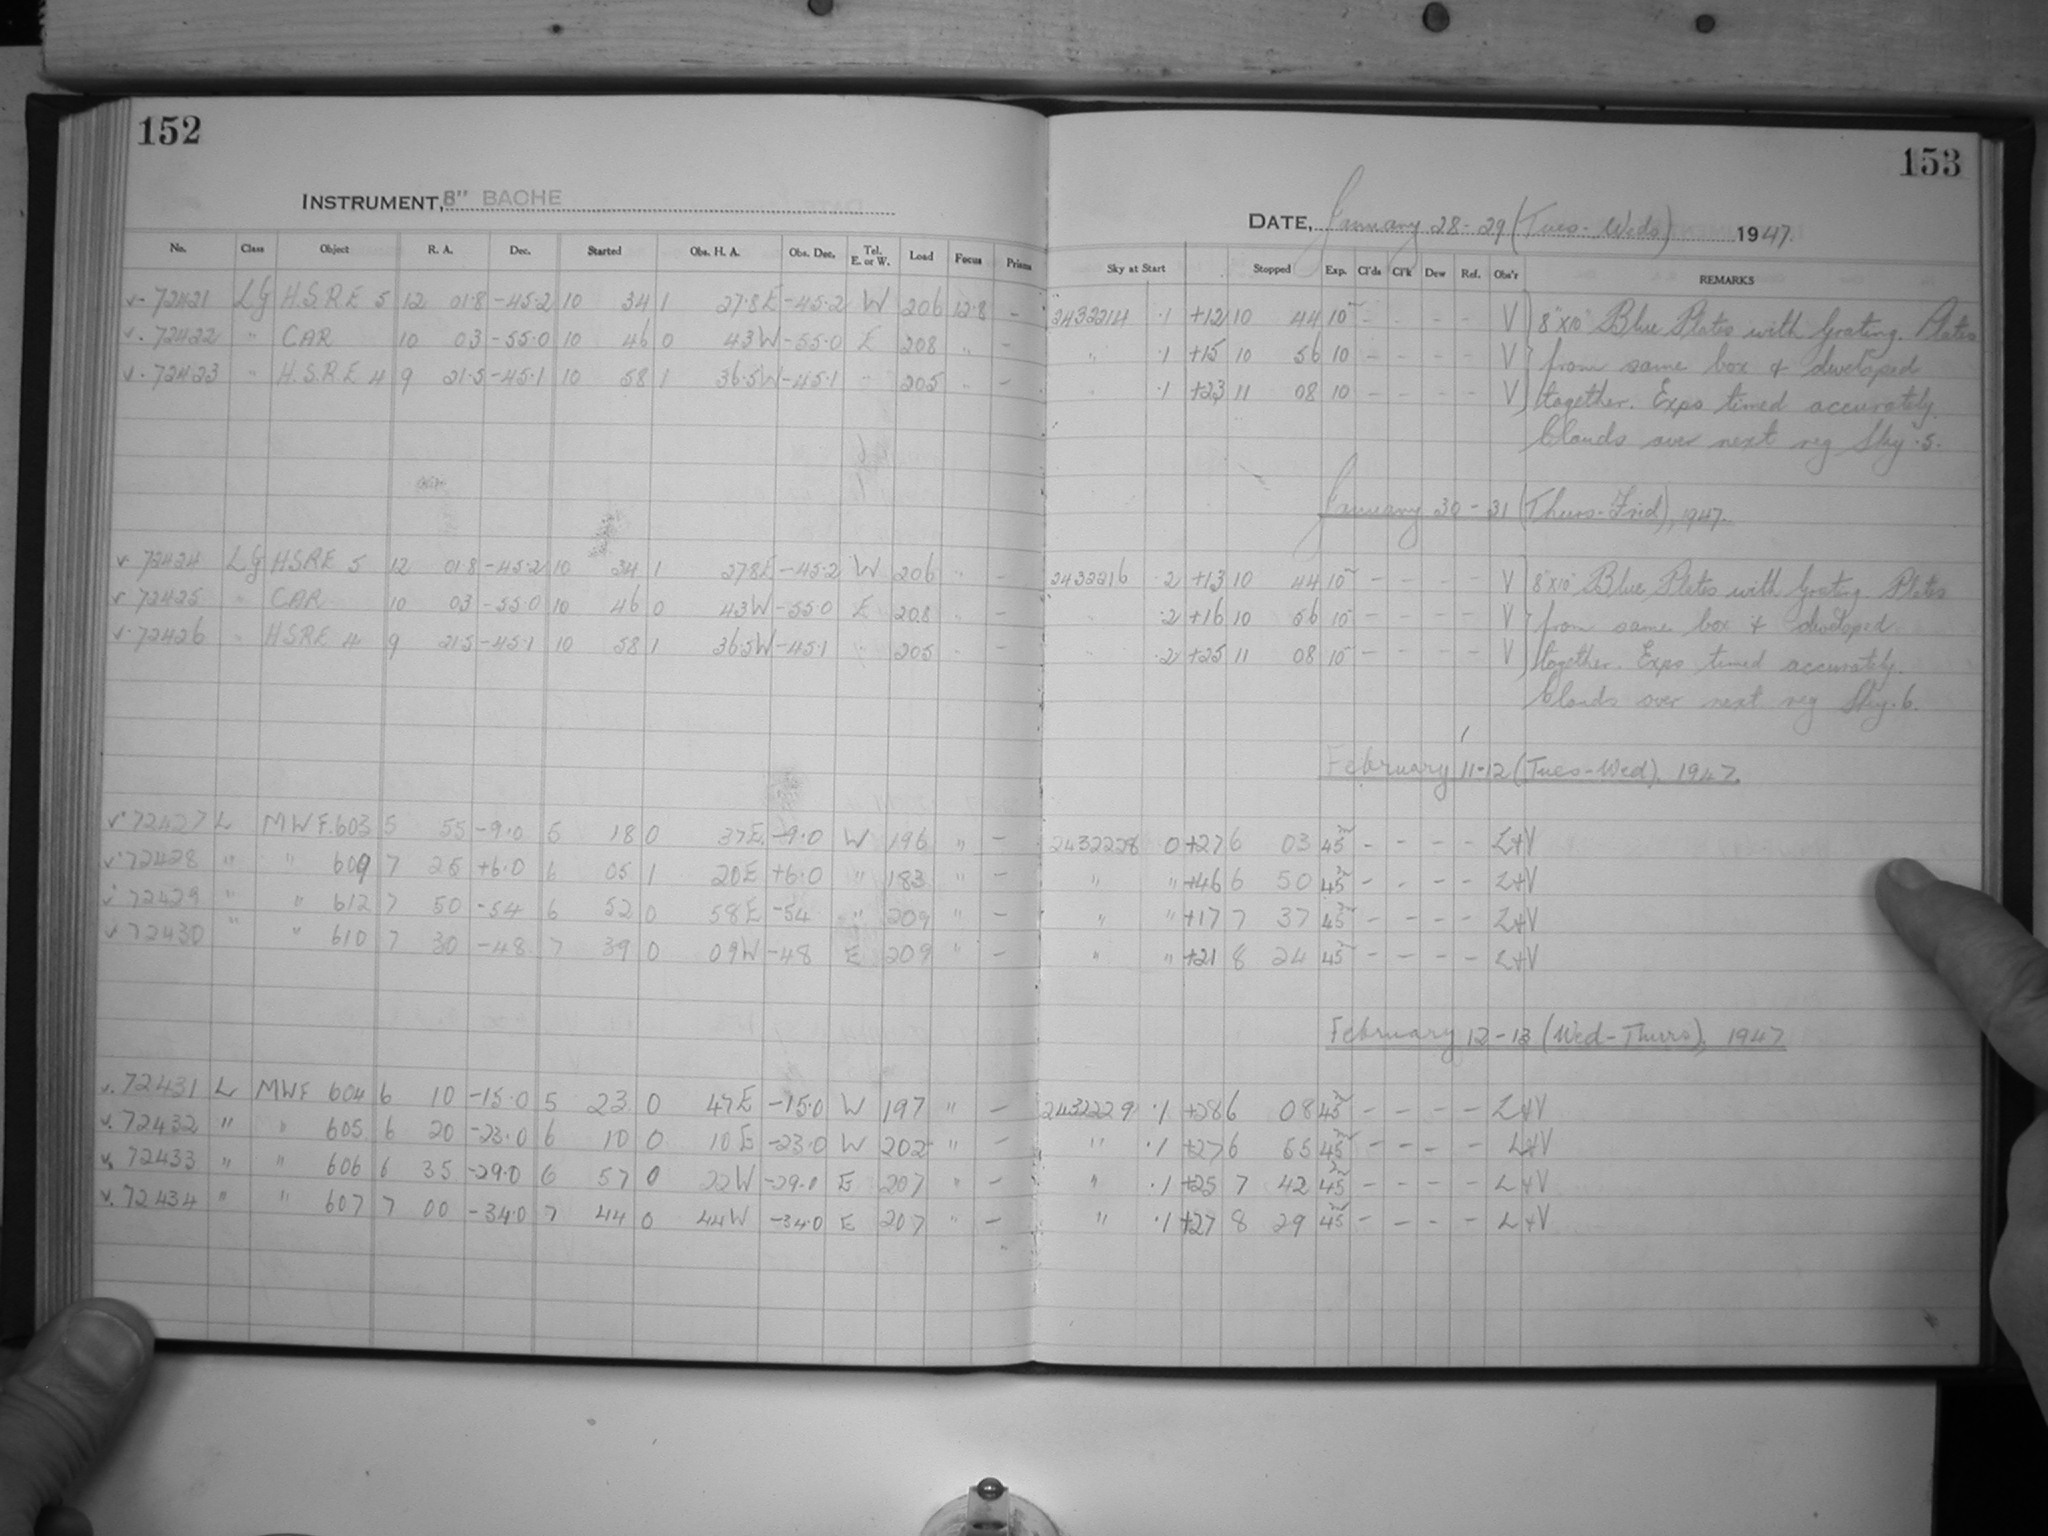 152
INSTRUMENT, 8" BACHE
No. Class Object R. A. Dec. Started Obs. H. A. Obs. Dec. Tel. E. or W. Load Focus Prisms
v- 72421 LG H.S.R.E 5 12 01.8 -45.2 10 34 1 27.8E -45.2 W 206 12.8 -
v. 72422 " CAR 10 03 -55.0 10 46 0 43W -55.0 E 208 " -
v- 72423 " H.S.R.E 4 9 21.5 -45.1 10 58 1 36.5W -45.1 " 205 " -
v 72424 LG HSRE 5 12 01.8 -45.2 10 34 1 27.8E -45.2 W 206 " -
v 72425 " CAR 10 03 -55.0 10 46 0 43W -55.0 E 208 " -
v. 72426 " HSRE 4 9 21.5 -45.1 10 58 1 36.5W -45.1 " 205 " -
v. 72427 L MWF. 603 5 55 -9.0 5 18 0 37E -9.0 W 196 " -
v. 72428 " " 609 7 25 +6.0 6 05 1 20E +6.0 " 183 " -
v. 72429 " " 612 7 50 -54 6 52 0 58E -54 " 209 " -
v 72430 " " 610 7 30 -48 7 39 0 09W -48 E 209 " -
v. 72431 L MWF 604 6 10 -15.0 5 23 0 47E -15.0 W 197 " -
v. 72432 " " 605 6 20 -23.0 6 10 0 10E -23.0 W 202 " -
v. 72433 " " 606 6 35 -29.0 6 57 0 22W -29.0 E 207 " -
v. 72434 " " 607 7 00 -34.0 7 44 0 44W -34.0 E 207 " -
153
DATE, January 28-29 (Tues-Weds) 1947.
Sky at Start Stopped Exp. Cl'ds Cl'k Dew Ref. Obs'r REMARKS
2432214 .1 +12 10 44 10 - - - - V 8"x10" Blue Plates with Grating. Plates
" .1 +15 10 56 10 - - - - V from same box & developed
" .1 +23 11 08 10 - - - - V together. Expo timed accurately.
Clouds over next reg Sky .5.
January 30-31 (Thurs-Frid), 1947.
2432216 .2 +13 10 44 10 - - - - V 8"x10" Blue Plates with Grating. Plates
" .2 +16 10 56 10 - - - - V from same box & developed
" .2 +25 11 08 10 - - - - V together. Expo timed accurately.
Clouds over next reg Sky .6.
February 11-12 (Tues-Wed), 1947.
2432228 0 +27 6 03 45 - - - - L+V
" " +46 6 50 45 - - - - L+V
" " +17 7 37 45 - - - - L+V
" " +21 8 24 45 - - - - L+V
February 12-13 (Wed-Thurs), 1947
2432229 .1 +28 6 08 45 - - - - L+V
" .1 +27 6 55 45 - - - - L+V
" .1 +25 7 42 45 - - - - L+V
" .1 +27 8 29 45 - - - - L+V